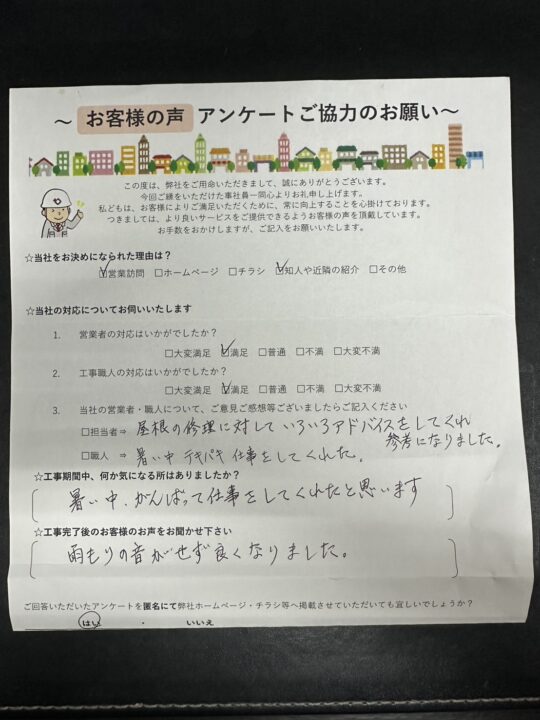 ～ お客様の声 アンケートご協力のお願い～
この度は、弊社をご用命いただきまして、誠にありがとうございます。
今回ご縁をいただけた事社員一同心よりお礼申し上げます。
私どもは、お客様によりご満足いただくために、常に向上することを心掛けております。
つきましては、より良いサービスをご提供できるようお客様の声を頂戴しています。
お手数をおかけしますが、ご記入をお願いいたします。
☆当社をお決めになられた理由は？
☑営業訪問 □ホームページ □チラシ ☑知人や近隣の紹介 □その他
☆当社の対応についてお伺いいたします
1. 営業者の対応はいかがでしたか？
□大変満足 ☑満足 □普通 □不満 □大変不満
2. 工事職人の対応はいかがでしたか？
□大変満足 ☑満足 □普通 □不満 □大変不満
3. 当社の営業者・職人について、ご意見ご感想等ございましたらご記入ください
□担当者⇒ 屋根の修理に対していろいろアドバイスをしてくれ
参考になりました。
□職人 ⇒ 暑い中テキパキ仕事をしてくれた。
☆工事期間中、何か気になる所はありましたか？
暑い中、がんばって仕事をしてくれたと思います
☆工事完了後のお客様のお声をお聞かせ下さい
雨もりの音がせず良くなりました。
ご回答いただいたアンケートを匿名にて弊社ホームページ・チラシ等へ掲載させていただいても宜しいでしょうか？
はい ・ いいえ